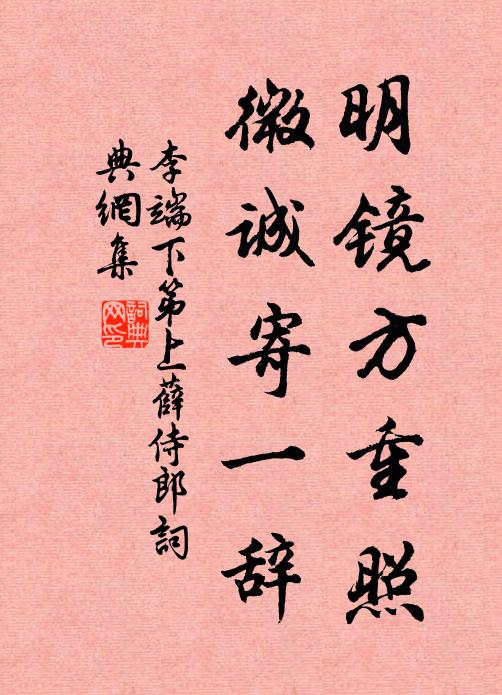 明镜方重照
微诚寄一辞
李端下第上薛侍郎詞
典網集
詞典网印